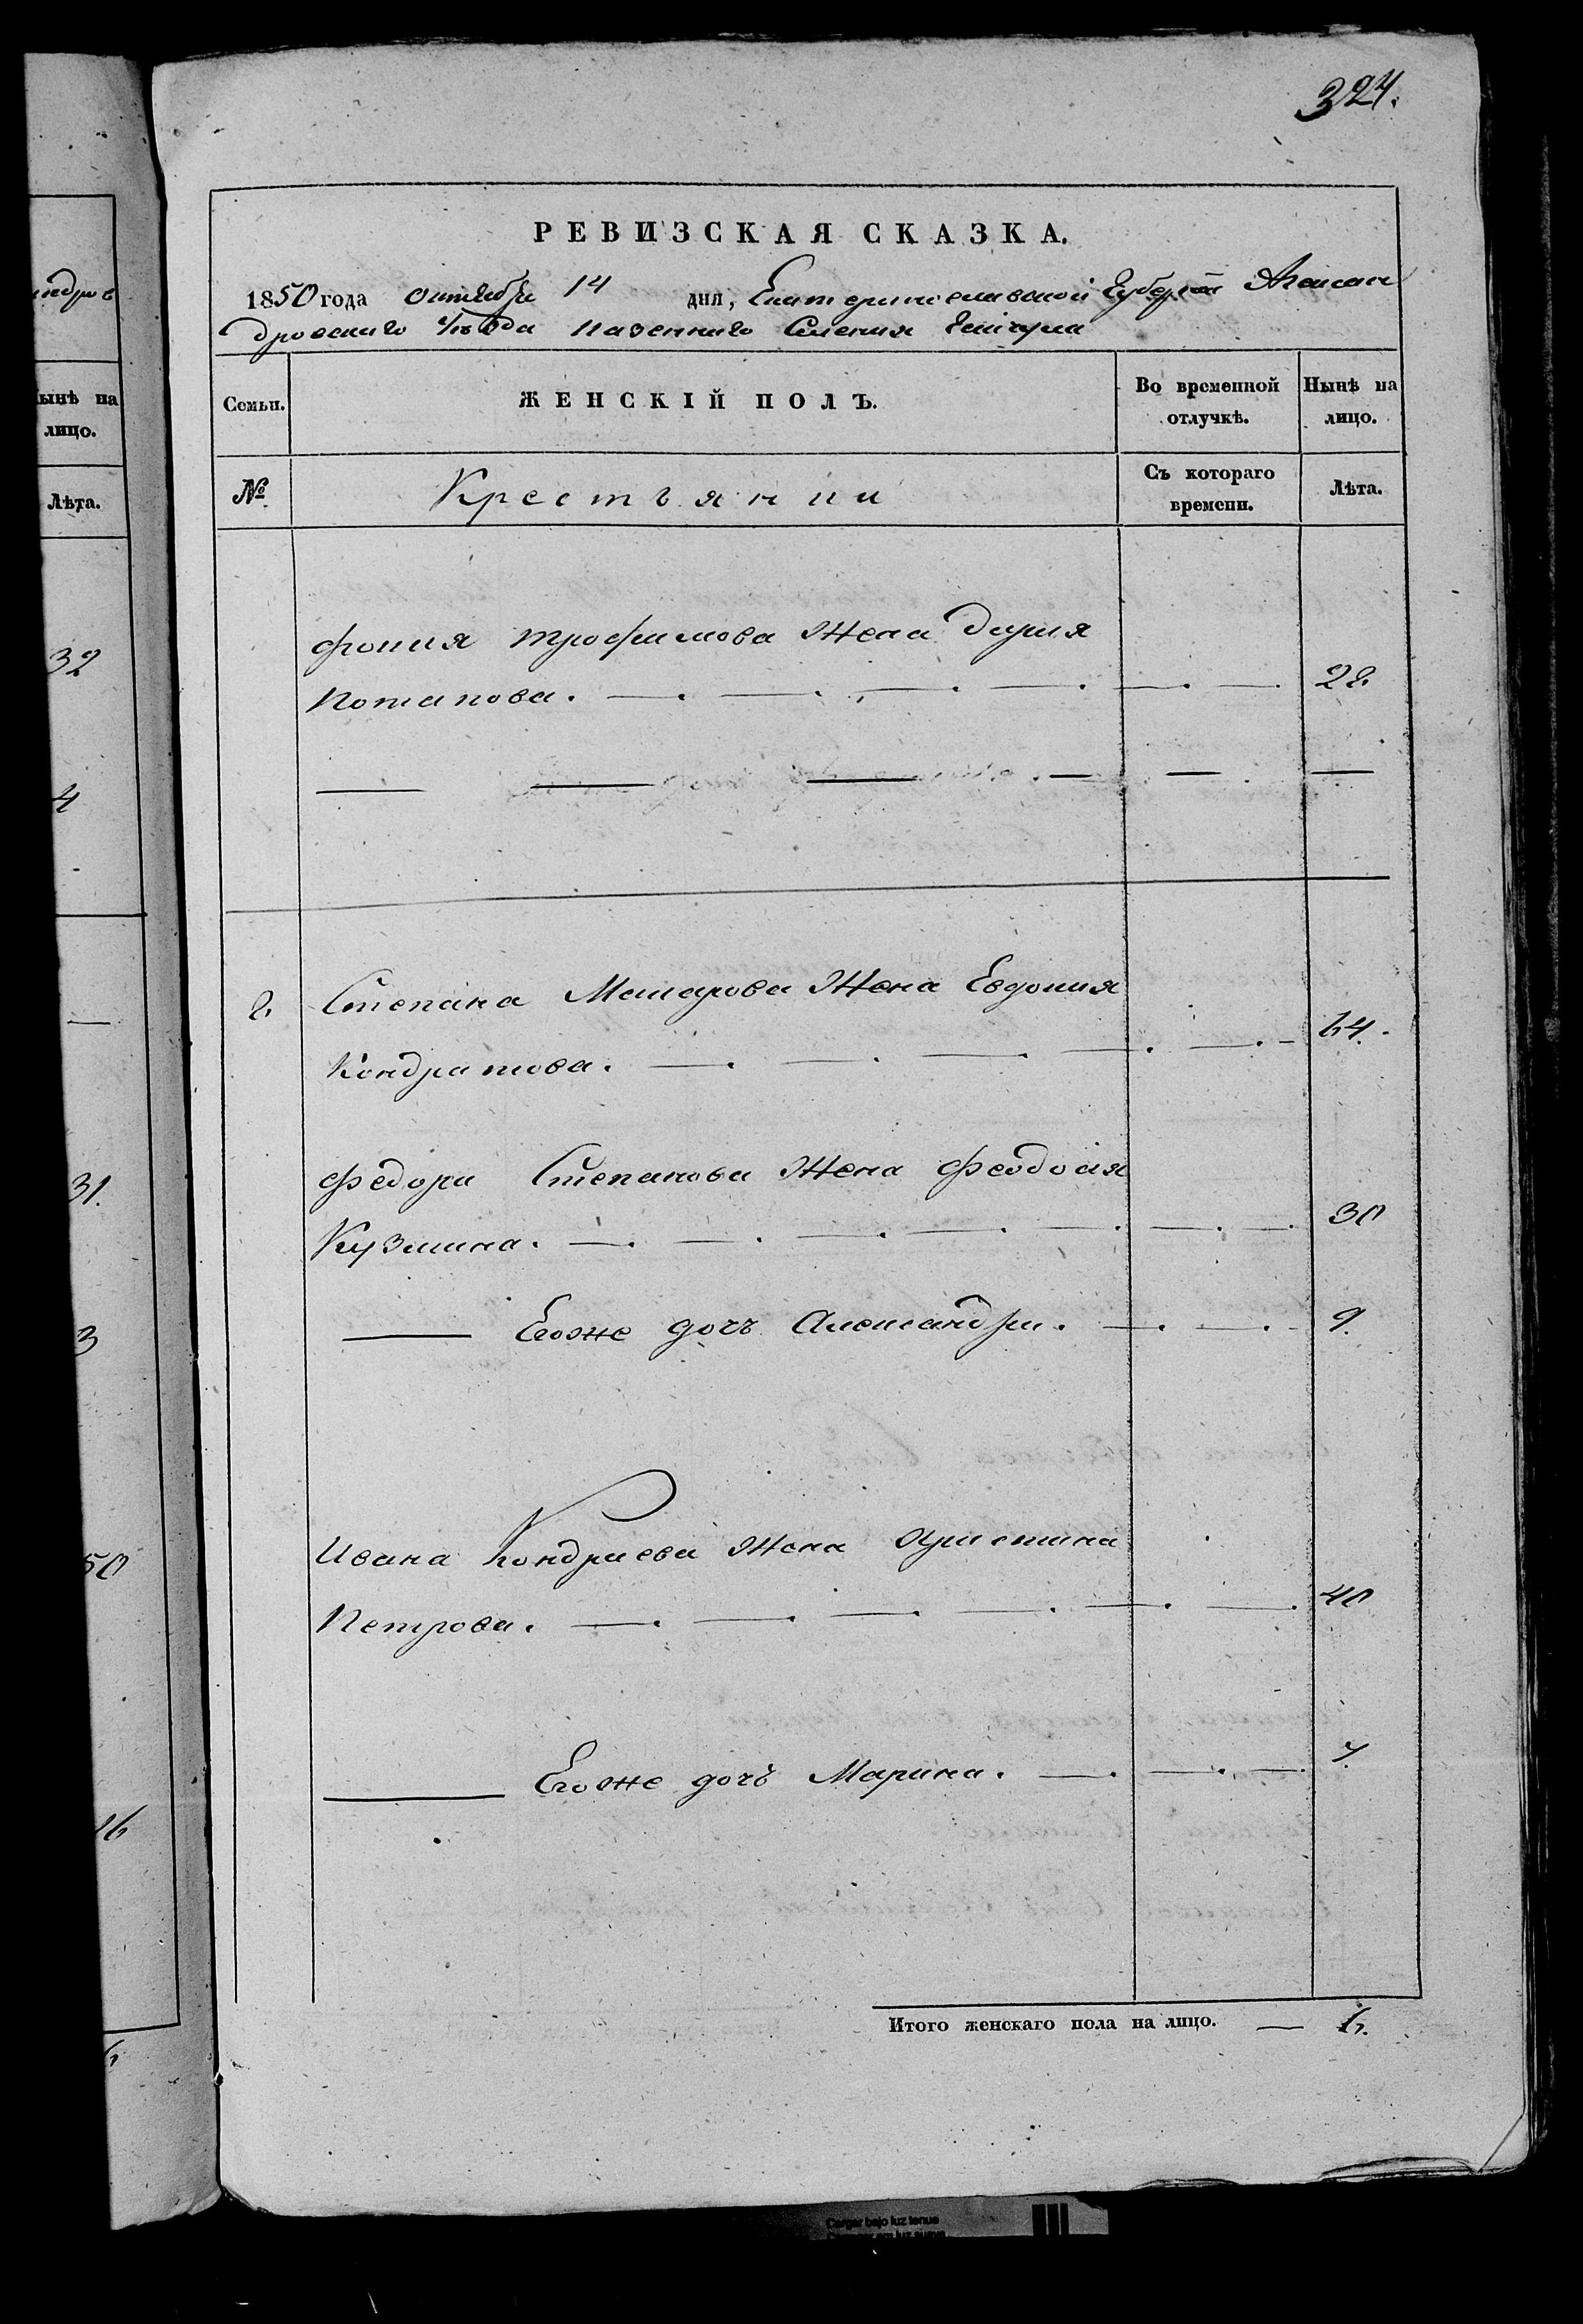 324.
РЕВИЗСКАЯ СКАЗКА.
1850 года октября 14 дня, Екатеринославской Губернии Алексан
дровского уѣзда казенного Селения
Семьи.
ЖЕНСКІЙ ПОЛЪ.
Во временной отлучкѣ.
Нынѣ на лицо.
№
Крестьянки
Съ котораго времени.
Лѣта.
фокия трофимова Жена Дария
Потапова. 28.
2. Степана Макарова Жена Евдокия
Кондратова. 64.
Федора Степанова Жена Феодосия
Кузмина. 30
Егоже дочъ Александра. 9.
Ивана Кондраева Жена Христина
Петрова. 40
Егоже дочъ Марина. 7.
Итого женскаго пола на лицо. — 6.
ындров
Нынѣ на
лицо.
Лѣта.
32
4
31.
3
50
16
6
Cargar bajo luz tenue